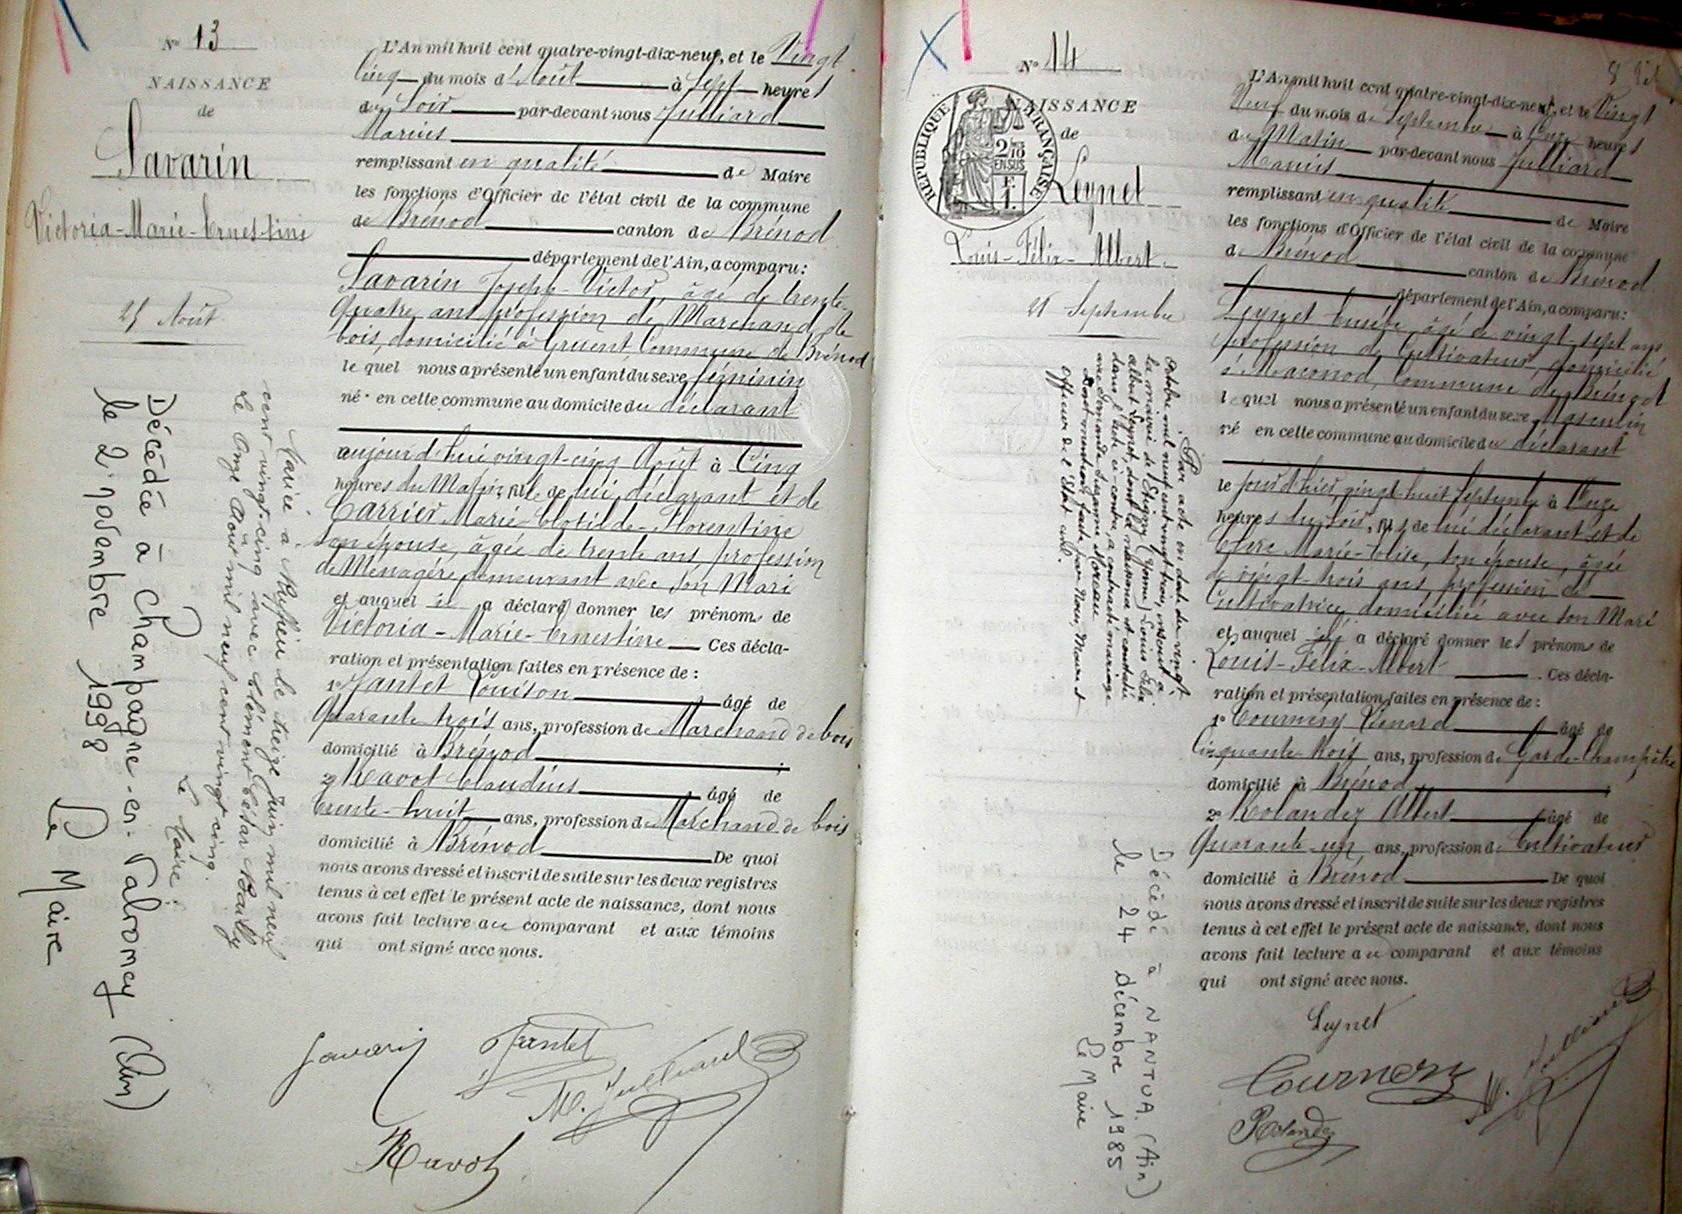 N° 13
NAISSANCE
de
Savarin
Victoria-Marie-Ernestine
25 Août
Mariée à Ruffieu le treize Juin mil neuf
cent vingt-cinq avec Clément César Bailly
Le Onze Août mil neuf cent vingt cinq.
Le Maire.
Décédée à Champagne-en-Valromey (Ain)
le 2 novembre 1998
Le Maire
L'An mil huit cent quatre-vingt-dix-neuf, et le Vingt
Cinq du mois d'Août à Sept heures
du Soir par-devant nous Julliard
Marius
remplissant en qualité de Maire
les fonctions d'Officier de l'état civil de la commune
de Brénod canton de Brénod
département de l'Ain, a comparu:
Savarin Joseph-Victor, âgé de trente
Quatre ans profession de Marchand de
bois, domicilié à Gruent Commune de Brénod
le quel nous a présenté un enfant du sexe féminin
né en cette commune au domicile du déclarant
aujourd'hui vingt-cinq Août à Cinq
heures du Matin, fille de lui déclarant et de
Carrier Marie-Clotilde-Florentine
son épouse, âgée de trente ans profession
de Ménagère demeurant avec son Mari
et auquel il a déclaré donner les prénoms de
Victoria-Marie-Ernestine Ces décla-
ration et présentation faites en présence de :
1° Jantet Louison âgé de
Quarante trois ans, profession de Marchand de bois
domicilié à Brénod ;
2° Ravot Claudius âgé de
trente-huit ans, profession de Marchand de bois
domicilié à Brénod De quoi
nous avons dressé et inscrit de suite sur les deux registres
tenus à cet effet le présent acte de naissance, dont nous
avons fait lecture au comparant et aux témoins
qui ont signé avec nous.
Savarin Jantet
M. Julliard
Ravot
N° 14
NAISSANCE
de
RÉPUBLIQUE FRANÇAISE
2/10 EN SUS
1 F.
Leynet
Louis-Félix-Albert
28 Septembre
Par acte en date du vingt
Octobre mil neuf cent vingt trois, inscrit à
la mairie de Étigny (Yonne) Louis Félix
Albert Leynet, dont la naissance est constatée
dans l'acte ci-contre, a contracté mariage
avec Suzanne Moreau
Dont mention faite par Nous, Maire et
Officier de l'État civil.
Décédé à NANTUA (Ain)
le 24 décembre 1985
Le Maire
L'An mil huit cent quatre-vingt-dix-neuf, et le Vingt
Neuf du mois de Septembre à Onze heures
du Matin par-devant nous Julliard
Marius
remplissant en qualité de Maire
les fonctions d'Officier de l'état civil de la commune
de Brénod canton de Brénod
département de l'Ain, a comparu:
Leynet Eusèbe, âgé de vingt-sept ans
profession de Cultivateur, domicilié
à Maconod, Commune de Brénod
le quel nous a présenté un enfant du sexe Masculin
né en cette commune au domicile du déclarant
le jour d'hier vingt-huit Septembre à Onze
heures du Soir, fils de lui déclarant et de
Marie-Élise, son épouse, âgée
de vingt-trois ans, profession de
Cultivatrice, domiciliée avec son Mari
et auquel il a déclaré donner les prénoms de
Louis-Félix-Albert. Ces décla-
ration et présentation faites en présence de :
1° Cournery Léonard âgé de
Cinquante-trois ans, profession de Garde-Champêtre
domicilié à Brénod ;
2° Rolandez Albert âgé de
Quarante-un ans, profession de Cultivateur
domicilié à Brénod De quoi
nous avons dressé et inscrit de suite sur les deux registres
tenus à cet effet le présent acte de naissance, dont nous
avons fait lecture au comparant et aux témoins
qui ont signé avec nous.
Leynet
Cournery M. Julliard
Rolandez